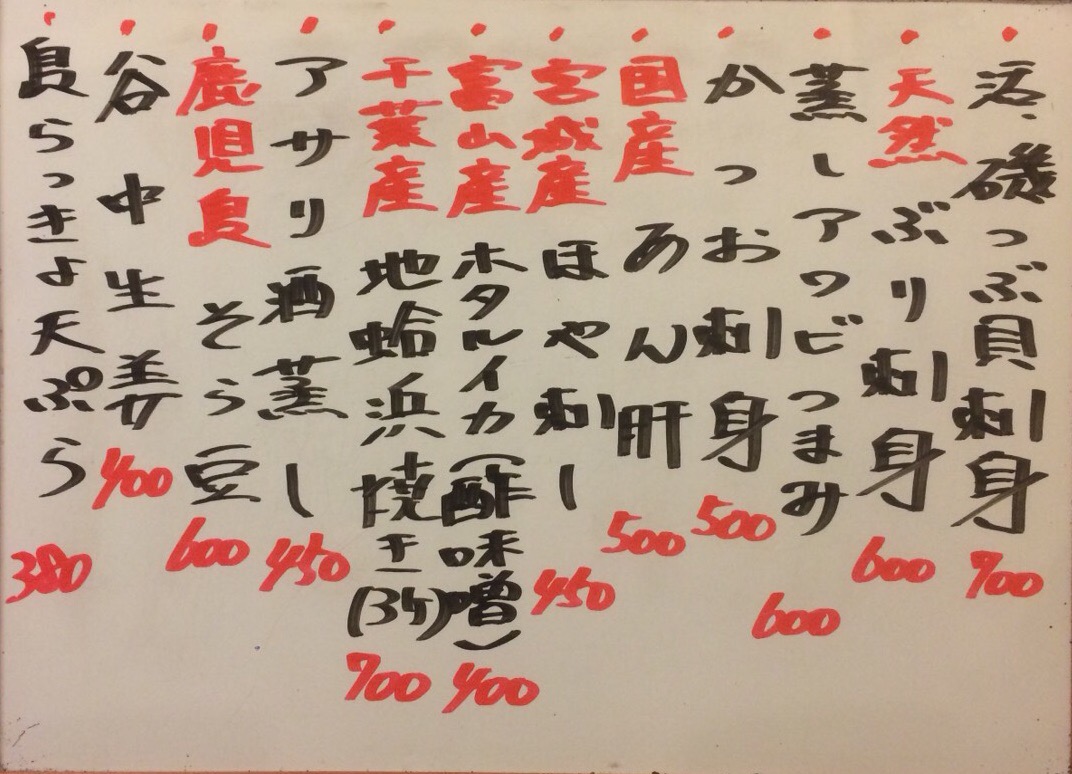 ・活、磯つぶ貝刺身 700
・天然ぶり刺身 600
・蒸しアワビつまみ 600
・かつお刺身 500
・国産あん肝 500
・宮城産ほや刺し 450
・富山産ホタルイカ(酢味噌) 400
・千葉産地蛤浜焼き(3ケ) 700
・アサリ酒蒸し 450
・鹿児島そら豆 600
・谷中生姜 400
・島らっきょ天ぷら 380